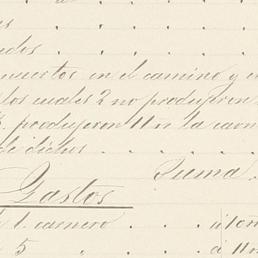 as . . . . .
idos . . . . .
muertos en el camino y en
los cuales 2 no produjeron
3. produjeron 11 rr la carne
de dichos . . . . .
Suma.
Gastos
1. carnero . . . á 1
5 . . . á 11 rr